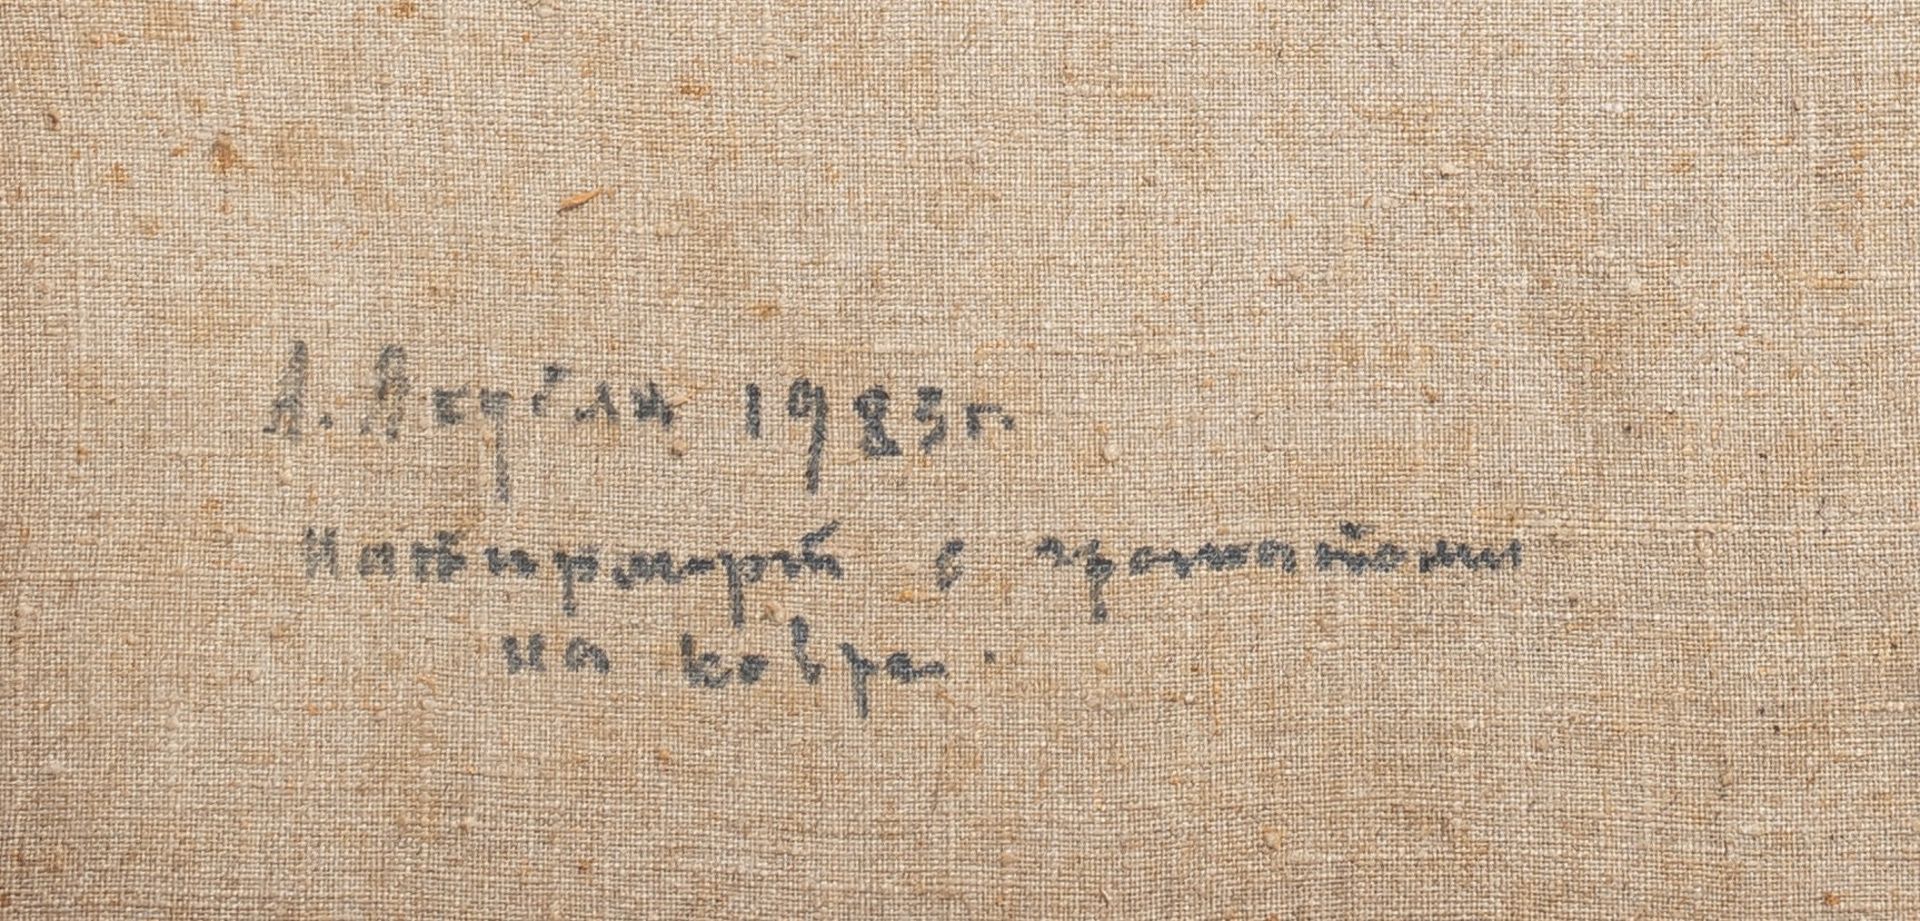 А. Якубли 1985г.
Натюрморт с гранатами
на ковре.